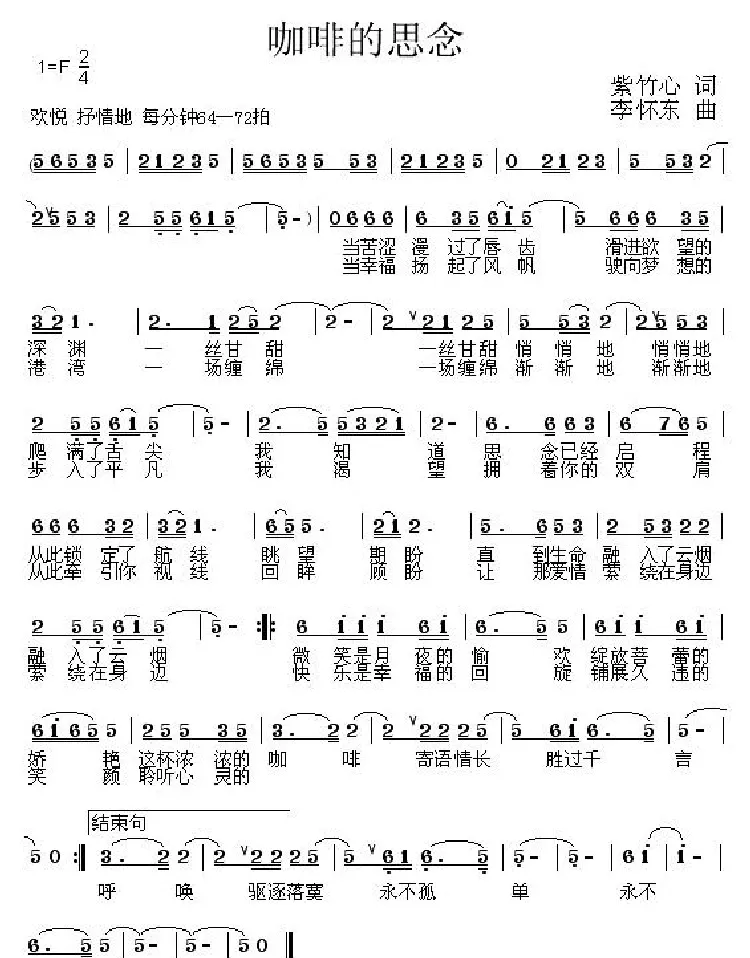 咖啡的思念
1=F 2/4
紫竹心 词
欢悦 抒情地 每分钟64—72拍
李怀东 曲
(56535 | 21235 | 56535 53 | 21235 | 0 2123 | 5 532 |
2∨553 | 2 55615 | 5-) | 0666 | 6 35615 | 5666 35 |
当苦涩 漫 过了唇 齿 滑进欲 望的
当幸福 扬 起了风 帆 驶向梦 想的
321. | 2. 1252 | 2- | 2∨2125 | 5 532 | 2∨5535 |
深 渊 一 丝甘 甜 一丝甘甜 悄 悄 地 悄悄地
港 湾 一 场缠 绵 一场缠绵 渐 渐 地 渐渐地
2 55615 | 5- | 2. 55321 | 2- | 6. 663 | 6 765 |
爬 满了舌 尖 我 知 道 思 念已经 启 程
步 入了平 凡 我 渴 望 拥 着你的 双 肩
666 32 | 321. | 655. | 212. | 5. 653 | 2 5535 |
从此锁 定了 航 线 眺 望 期 盼 直 到生命 融 入了云烟
从此牵 引你 视 线 回 眸 顾 盼 让 那爱情 萦 绕在身边
2 55615 | 5- :||: 6i ii 6i | 6. 5 5 | 6i ii 6i |
融 入了云 烟 微 笑是月 夜的 愉 欢 绽放蓓 蕾的
萦 绕在身 边 快 乐是幸 福的 回 旋 铺展久 违的
6i655 | 255 35 | 3. 22 | 2∨2225 | 5 616. 5 | 5- |
娇 艳 这杯浓 浓的 咖 啡 寄语情长 胜过千 言
笑 颜 聆听心 灵的
结束句
50 :|| 3. 22 | 2∨2225 | 5 616. 5 | 5- | 6i | i- |
呼 唤 驱逐落寞 永不孤 单 永不
6. 5 5 | 5- | 50 ||